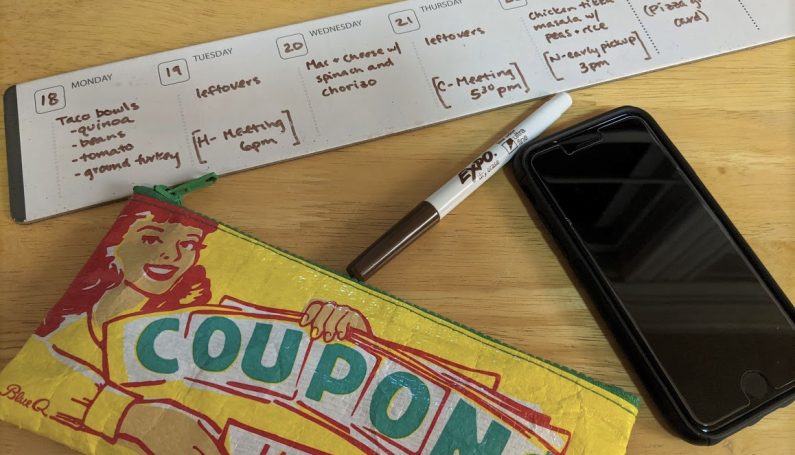 18 MONDAY
Taco bowls
-quinoa
-beans
-tomato
-ground turkey
19 TUESDAY
leftovers
[H- Meeting
6pm]
20 WEDNESDAY
Mac + cheese w/
spinach and
chorizo
21 THURSDAY
leftovers
[C- Meeting
530pm]
chicken tikka
masala w/
peas + rice
[N-early pickup
3pm]
(Pizza
card)
EXPO.
dry erase
ultra
fine
COUPON
Blue Q